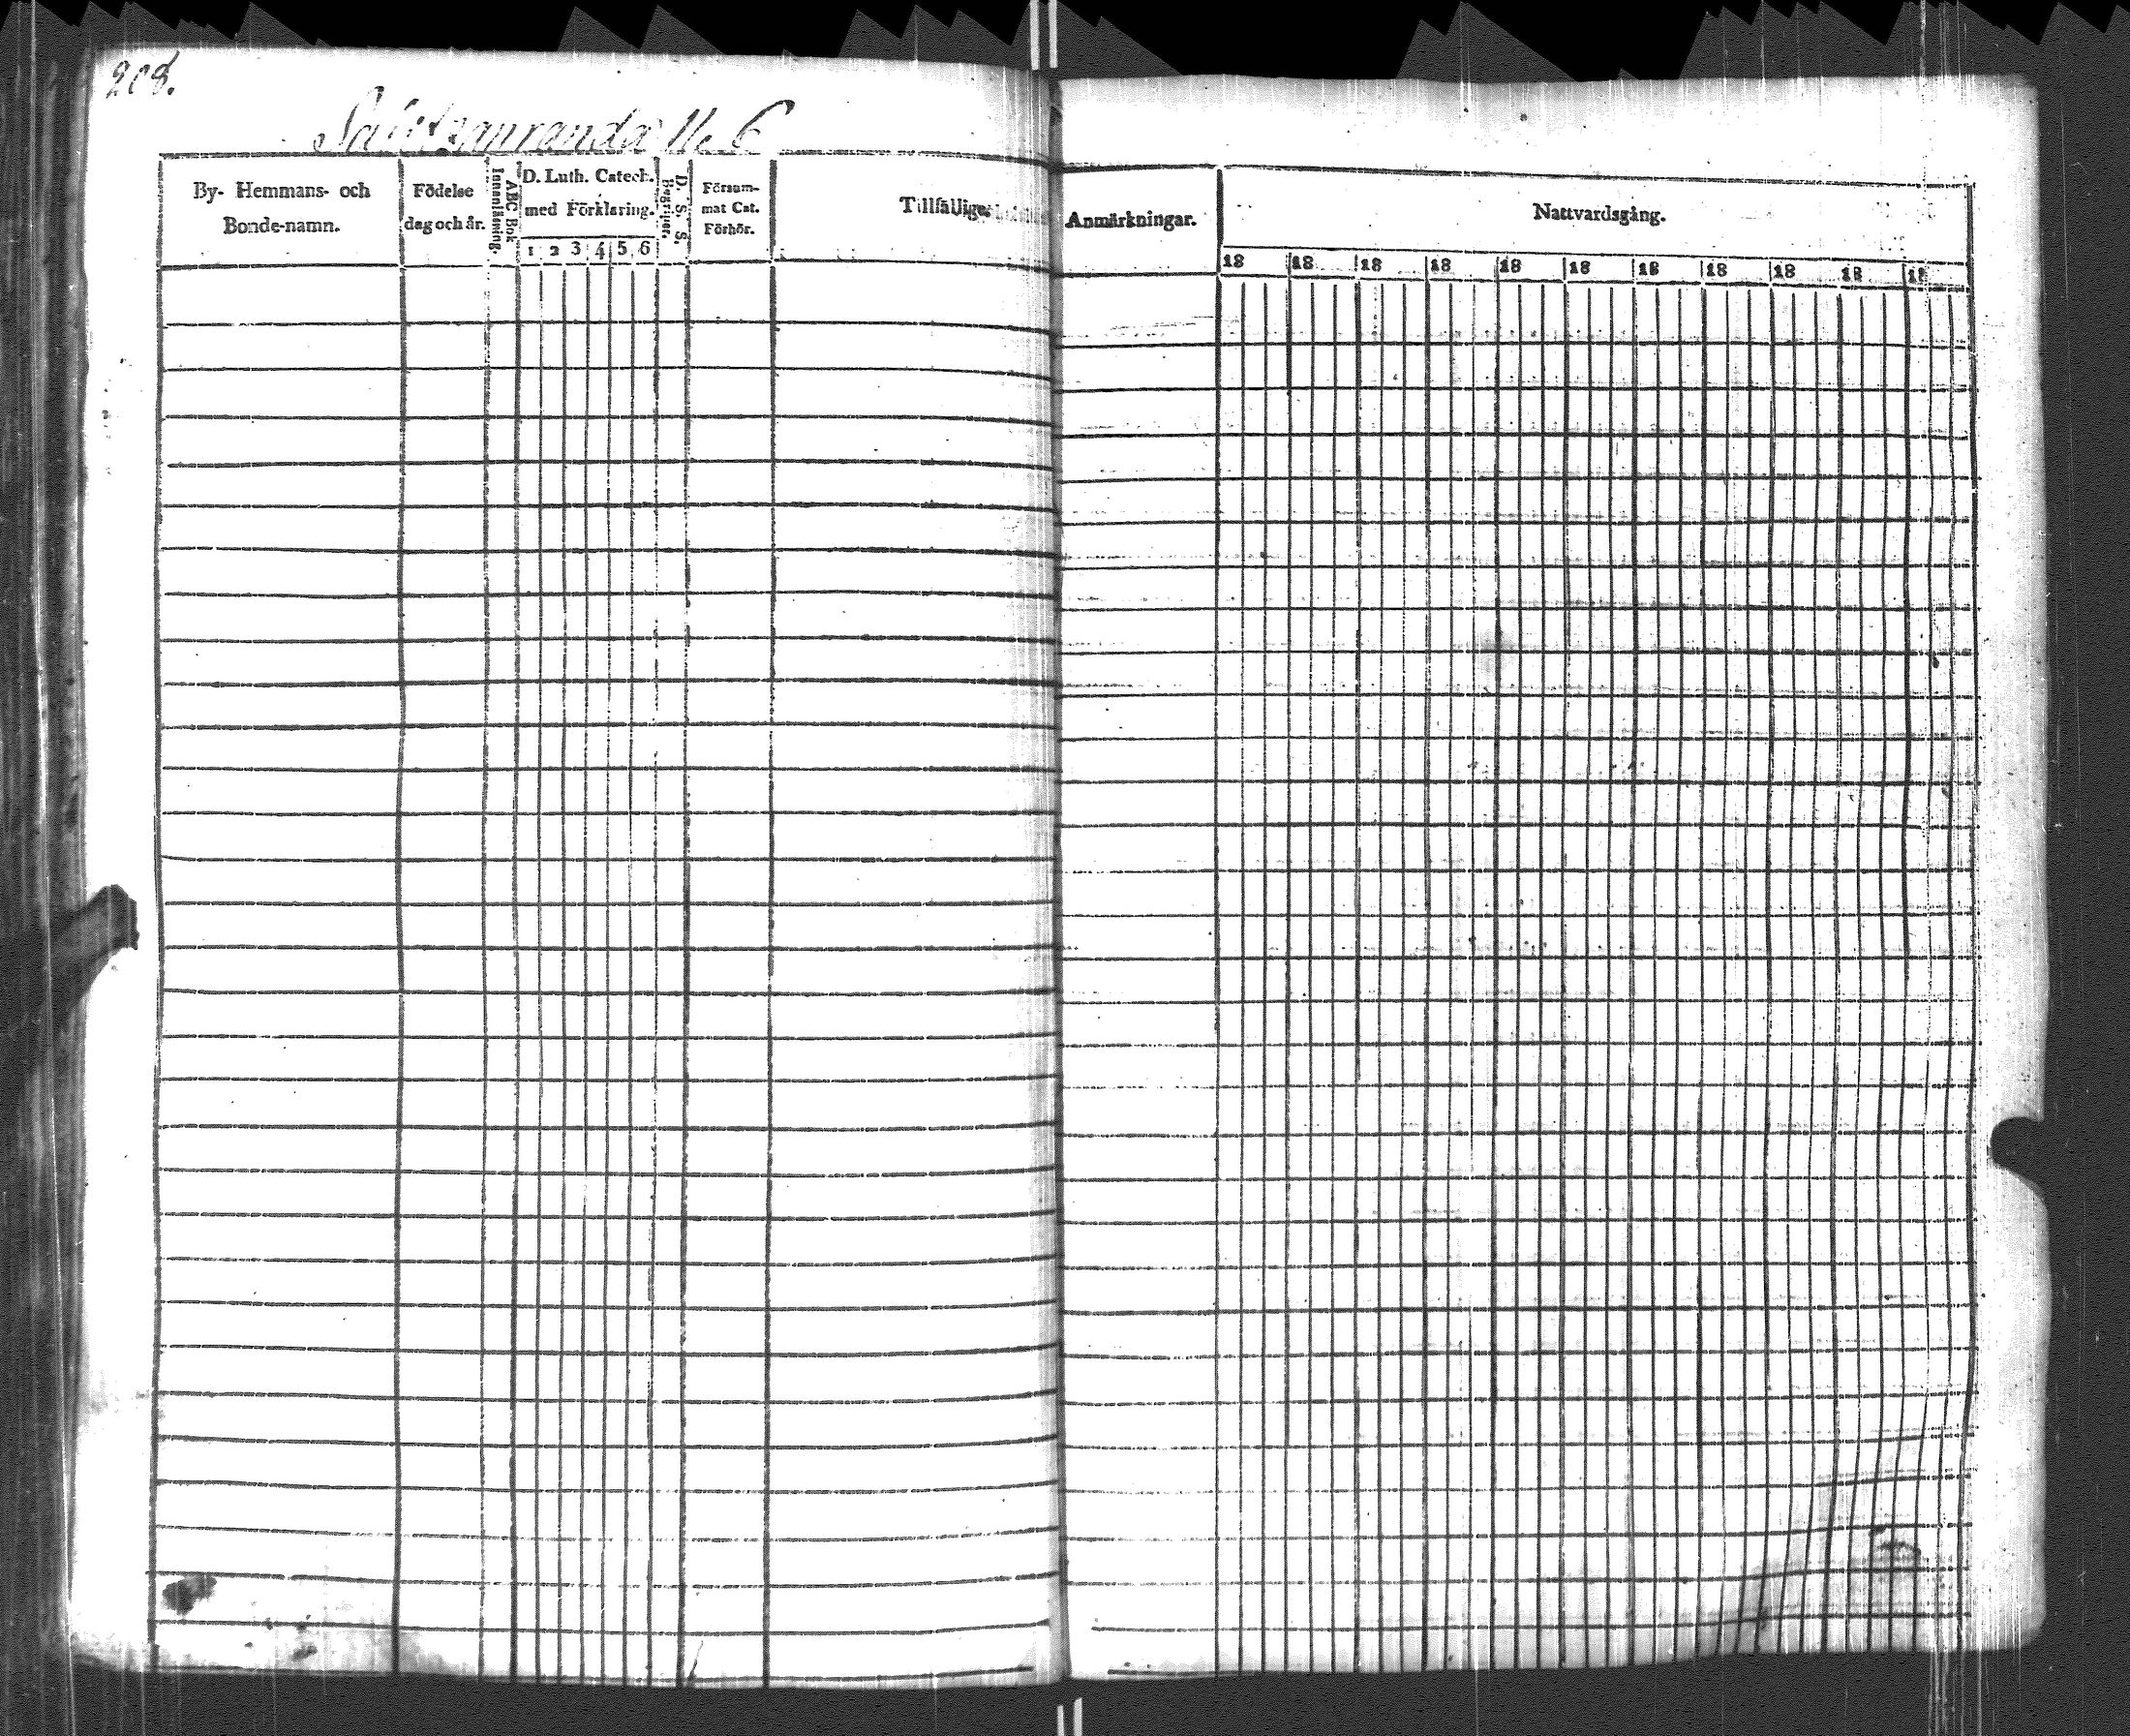 208.
No 6
By- Hemmans- och
Bonde-namn.
Födelse
dag och år.
ABC Bok
Innanläsning.
D. Luth. Catech.
med Förklaring.
1 2 3 4 5 6
Begripner.
D. S. S.
Försum-
mat Cat.
Förhör.
Tillfällige
Anmärkningar.
Nattvardsgång.
18 18 18 18 18 18 18 18 18 18 18